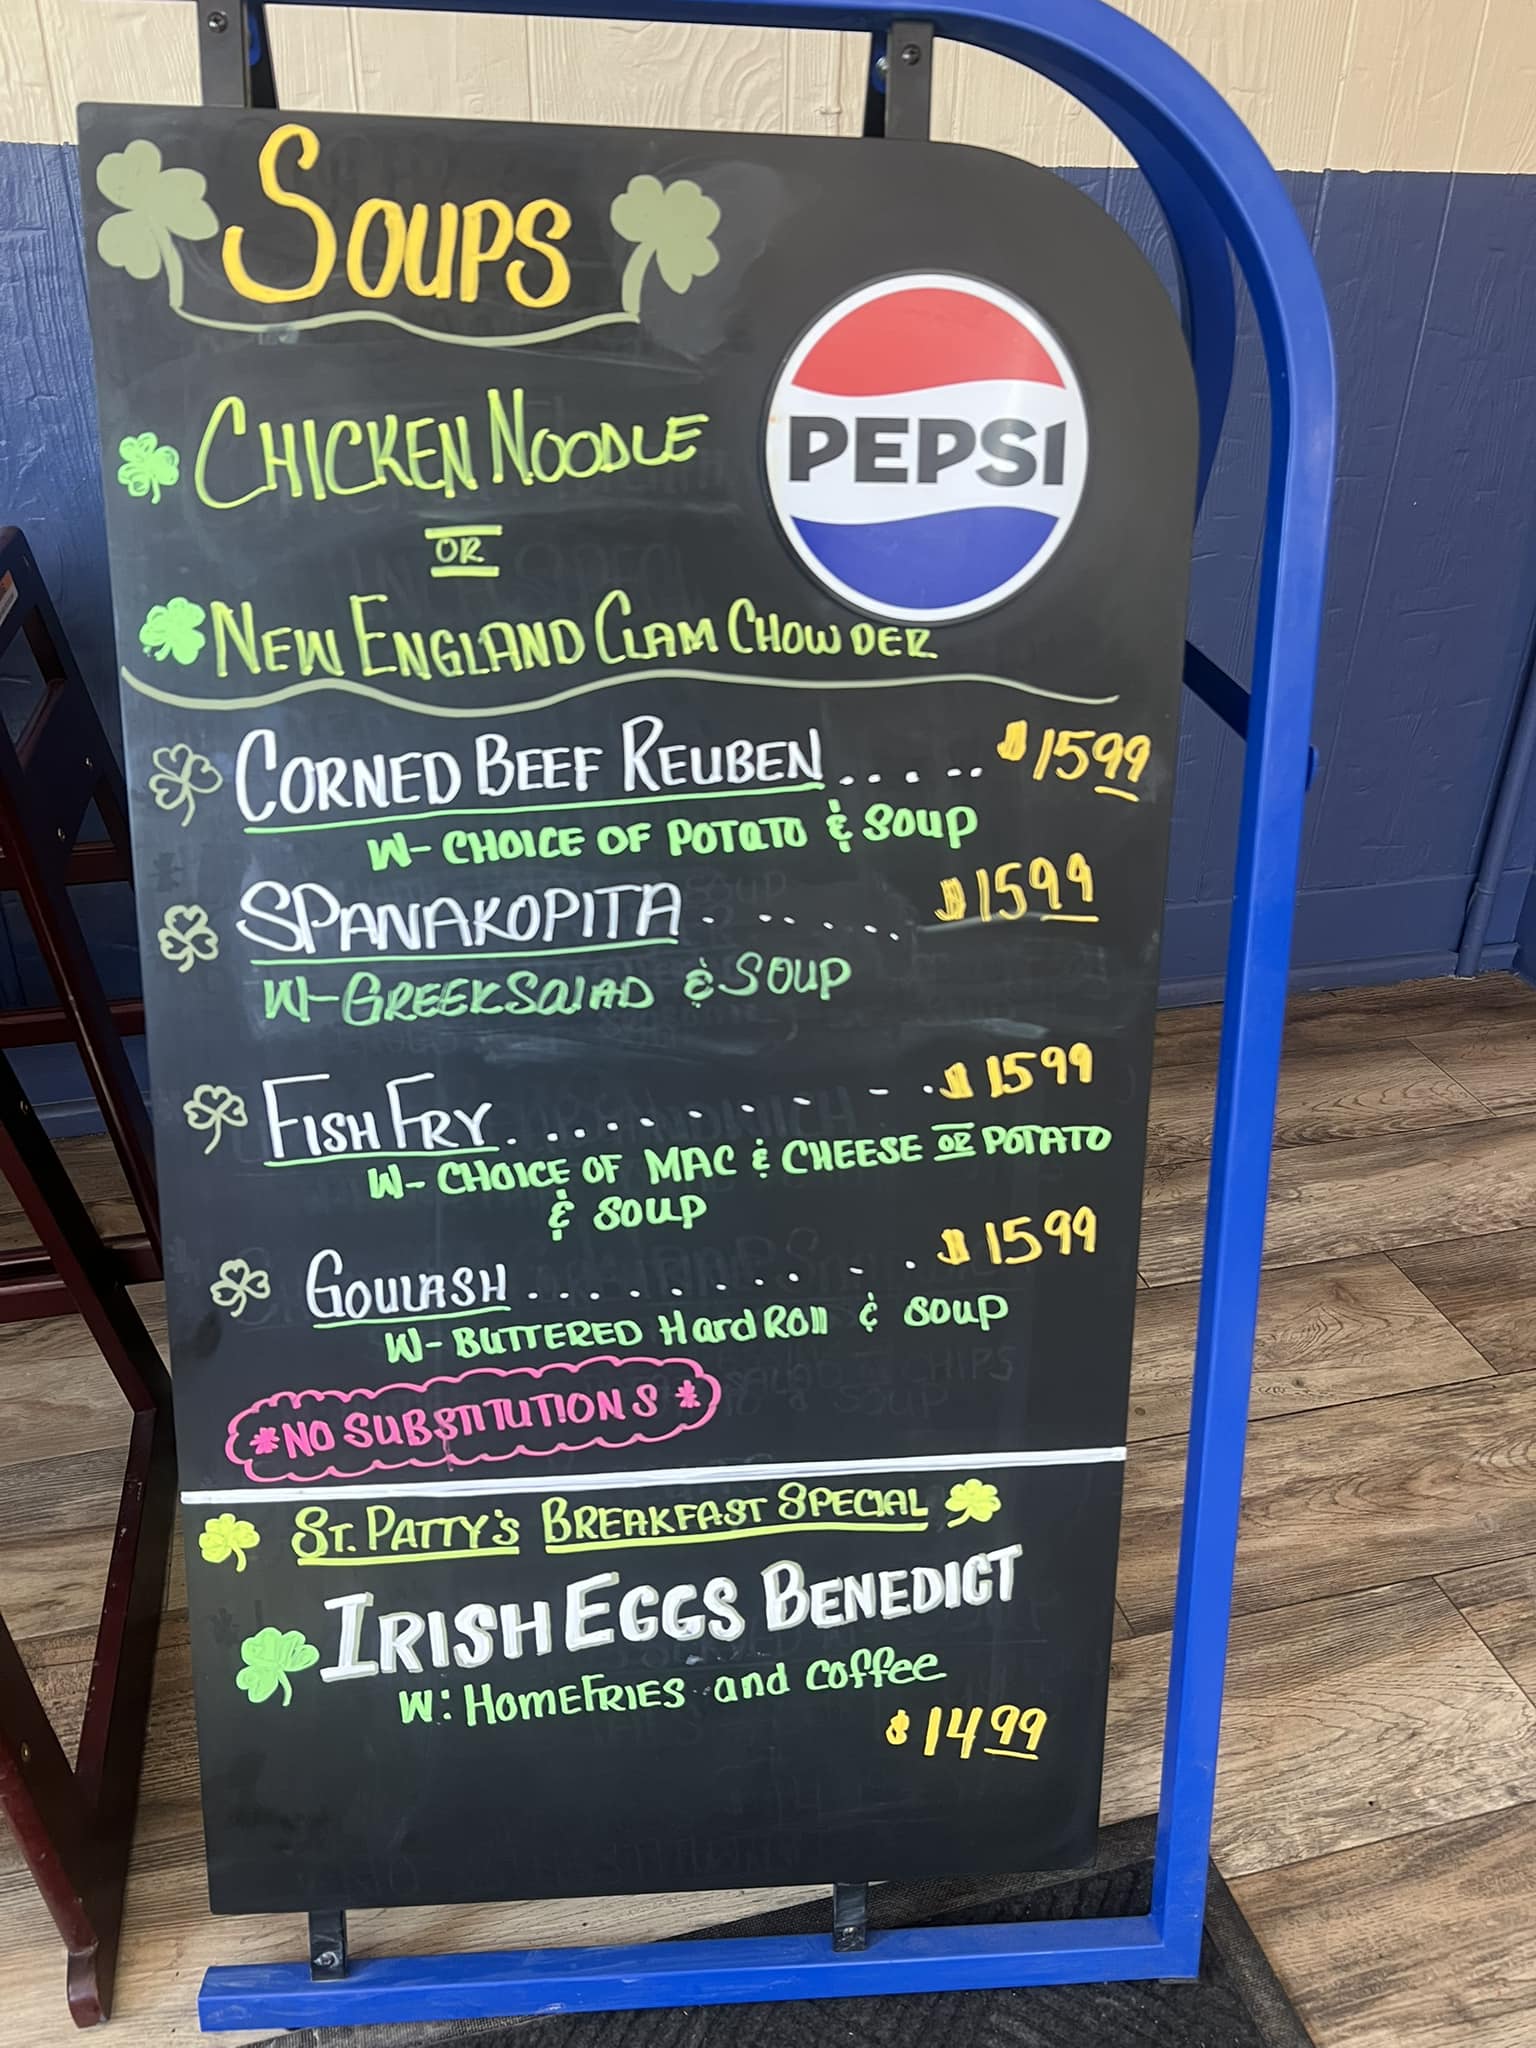 SOUPS
PEPSI
CHICKEN NOODLE
OR
NEW ENGLAND CLAM CHOWDER
CORNED BEEF REUBEN . . . . . $1599
W- CHOICE OF POTATO & SOUP
SPANAKOPITA . . . . . . . $1599
W- GREEK SALAD & SOUP
FISH FRY . . . . . . . . . . . $1599
W- CHOICE OF MAC & CHEESE OR POTATO
& SOUP
GOULASH . . . . . . . . . . $1599
W- BUTTERED Hard Roll & SOUP
*NO SUBSTITUTIONS*
ST. PATTY'S BREAKFAST SPECIAL
IRISH EGGS BENEDICT
W: HOMEFRIES and coffee
$1499